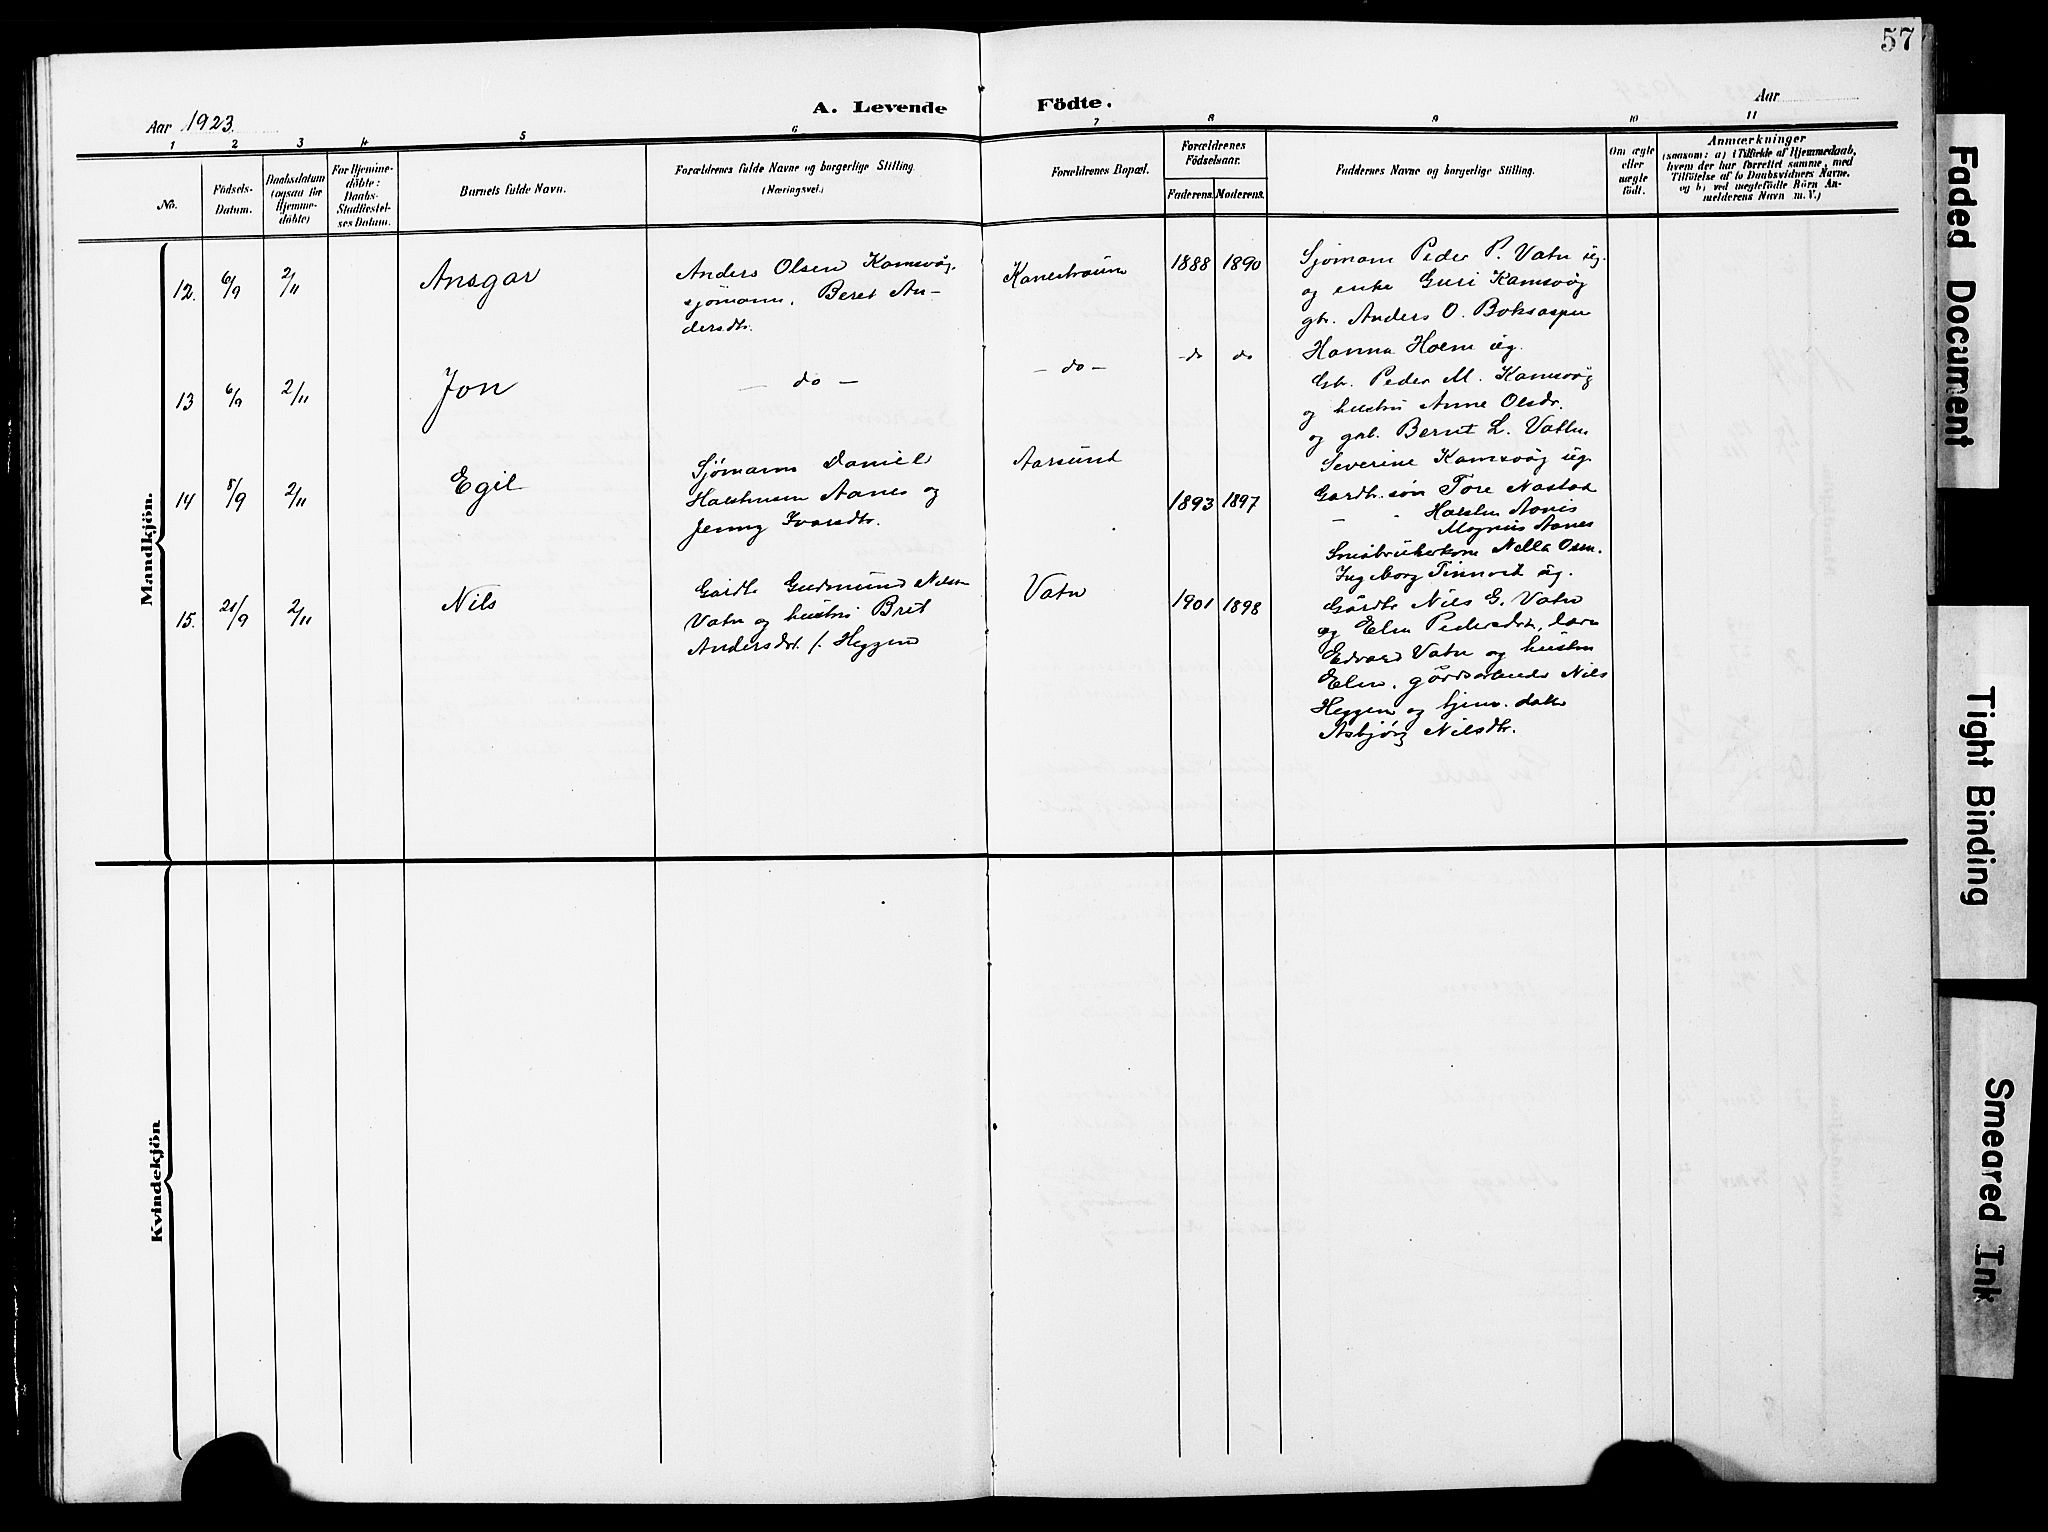 57
A. Levende Födte.
Aar 1923.
Aar
1 2 3 4 5 6 7 8 9 10 11
No.
Födsels-
Datum.
Daabsdatum
(ogsaa for
Hjemme-
döbte)
For Hjemme-
döbte:
Daabs-
Stadfæstel-
ses Datum.
Barnets fulde Navn.
Forældrenes fulde Navne og borgerlige Stilling.
(Næringsvei.)
Forældrenes Bopæl.
Forældrenes
Födselsaar.
Faderens. Moderens.
Faddernes Navne og borgerlige Stilling.
Om ægte
eller
uægte
födt.
Anmærkninger
(saasom: a) i Tilfælde af Hjemmedaab,
hvem der har forrettet samme, med
Tilföielse af to Daabsvidners Navne,
og b) ved uægtefödte Börn An-
melderens Navn m. V.)
Mandkjön.
12. 6/9 2/11 Ansgar
Anders Olsen Kamsvåg,
sjømann. Beret An-
dersdtr.
Kanestraum
1888 1890
Sjømann Peder P. Vatn ug.
og enke Guri Kamsvåg
gbr. Anders O. Boksasper
Hanna Holm ug.
13 6/9 2/11 Jon
— do —
— do —
— do do
Gbr. Peder M. Kamsvåg
og hustru Anne Olsdr.
og gbr. Bernt L. Vatn
Severine Kamsvåg ug.
14 8/9 2/11 Egil
Sjømann Daniel
Halstensen Aanes og
Jenny Ivarsdtr.
Aarsund
1893 1897
Gardbr. søn Tore Nastad
Halsten Aanes
Magnus Aanes
Småbrukerkone Nella Osen.
Ingeborg Tinnvik ug.
15. 21/9 2/11 Nils
Gardbr Gudmund Nilsen
Vatn og hustru Brit
Andersdtr. f. Heggem
Vatn
1901 1898
Gårdbr Nils G. Vatn
og Elen Pedersdtr, lærer
Edvard Vatn og hustru
Elen, gårdsarbeider Nils
Heggem og hjemv. datter
Asbjørg Nilsdtr.
Kvindekjön
Faded Document
Tight Binding
Smeared Ink